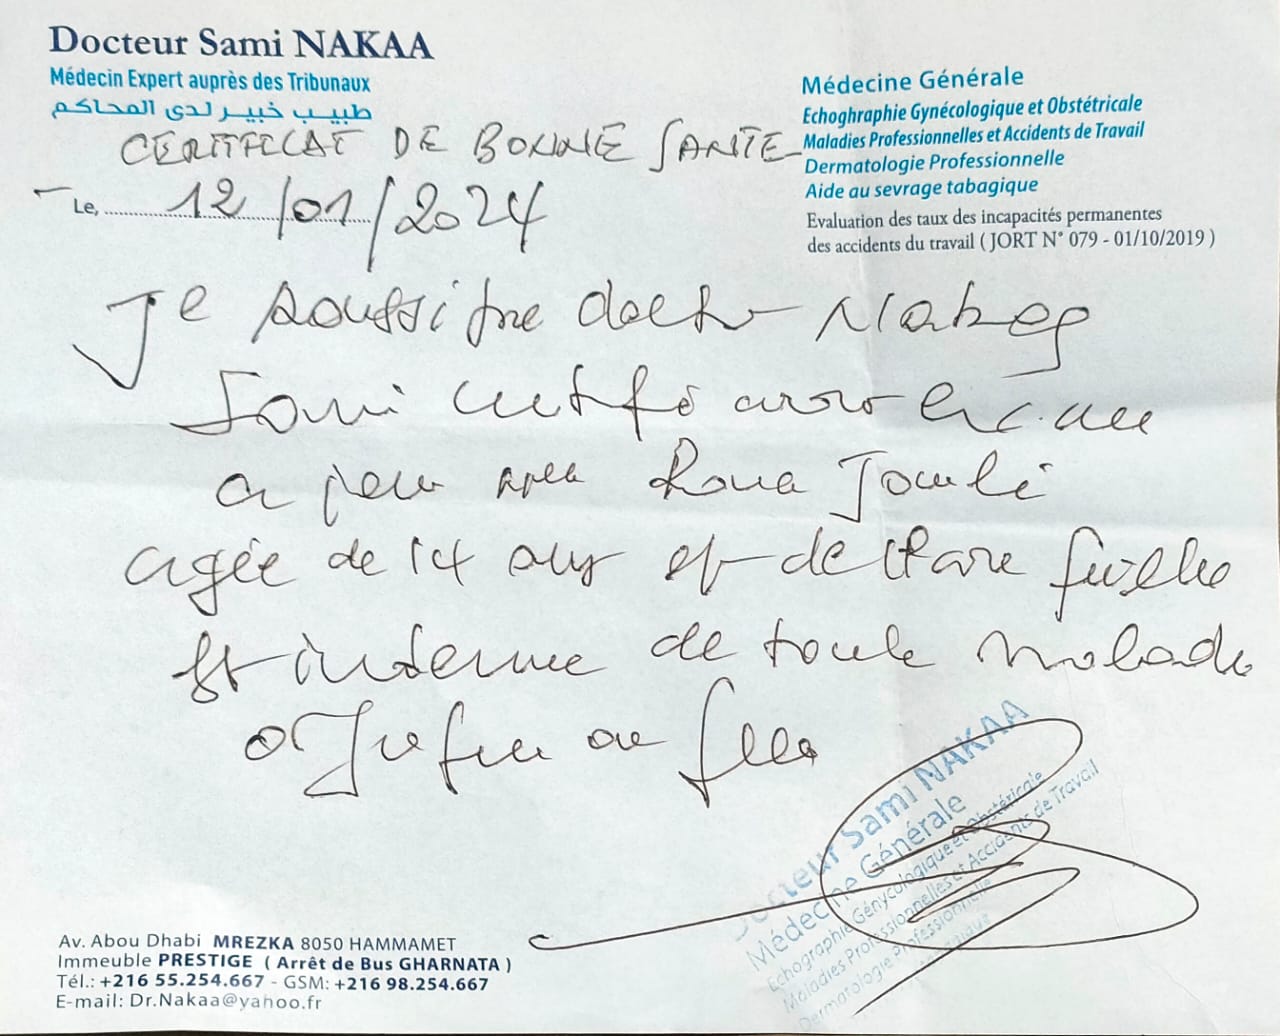 Docteur Sami NAKAA
Médecin Expert auprès des Tribunaux
طبيب خبير لدى المحاكم
Médecine Générale
Echoghraphie Gynécologique et Obstétricale
Maladies Professionnelles et Accidents de Travail
Dermatologie Professionnelle
Aide au sevrage tabagique
Evaluation des taux des incapacités permanentes
des accidents du travail ( JORT N° 079 - 01/10/2019 )
CERTIFICAT DE BONNE SANTE
Le, 12/01/2024
Je soussigné docteur Nakaa
Sami certifie avoir examiné
ce jour Roua Jouili
agée de 14 ans et déclare qu'elle
est indemne de toute maladie
Docteur Sami NAKAA
Médecine Générale
Echographie Génycologique et Obstétricale
Maladies Professionnelles et Accidents de Travail
Dermatologie Professionnelle
Av. Abou Dhabi MREZKA 8050 HAMMAMET
Immeuble PRESTIGE ( Arrêt de Bus GHARNATA )
Tél.: +216 55.254.667 - GSM: +216 98.254.667
E-mail: Dr.Nakaa@yahoo.fr